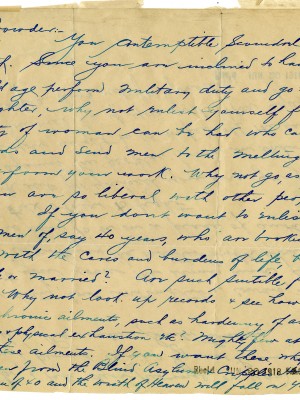 Crowder:-
You contemptible Scoundrel
Since you are inclined to ha
ld age perform military duty and go
ghter, why not enlist yourself f
ty of woman can be had who ca
ds and send men to the melting
rform your work. Why not go, as
u are so liberal with other peop
If you don't want to enlis
men of, say 40 years, who are broke
with the cares and burdens of life, t
or married? Are such suitable f
Why not look up records & see how
chronic ailments, such as hardening of ar
& physical exhaustion etc? Mighty few at
ailments. If you want these, why
from the Blind Asylums
of 40 and the wrath of Heaven will fall on y